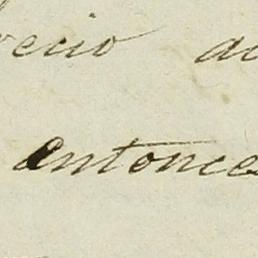 recio a
entonces